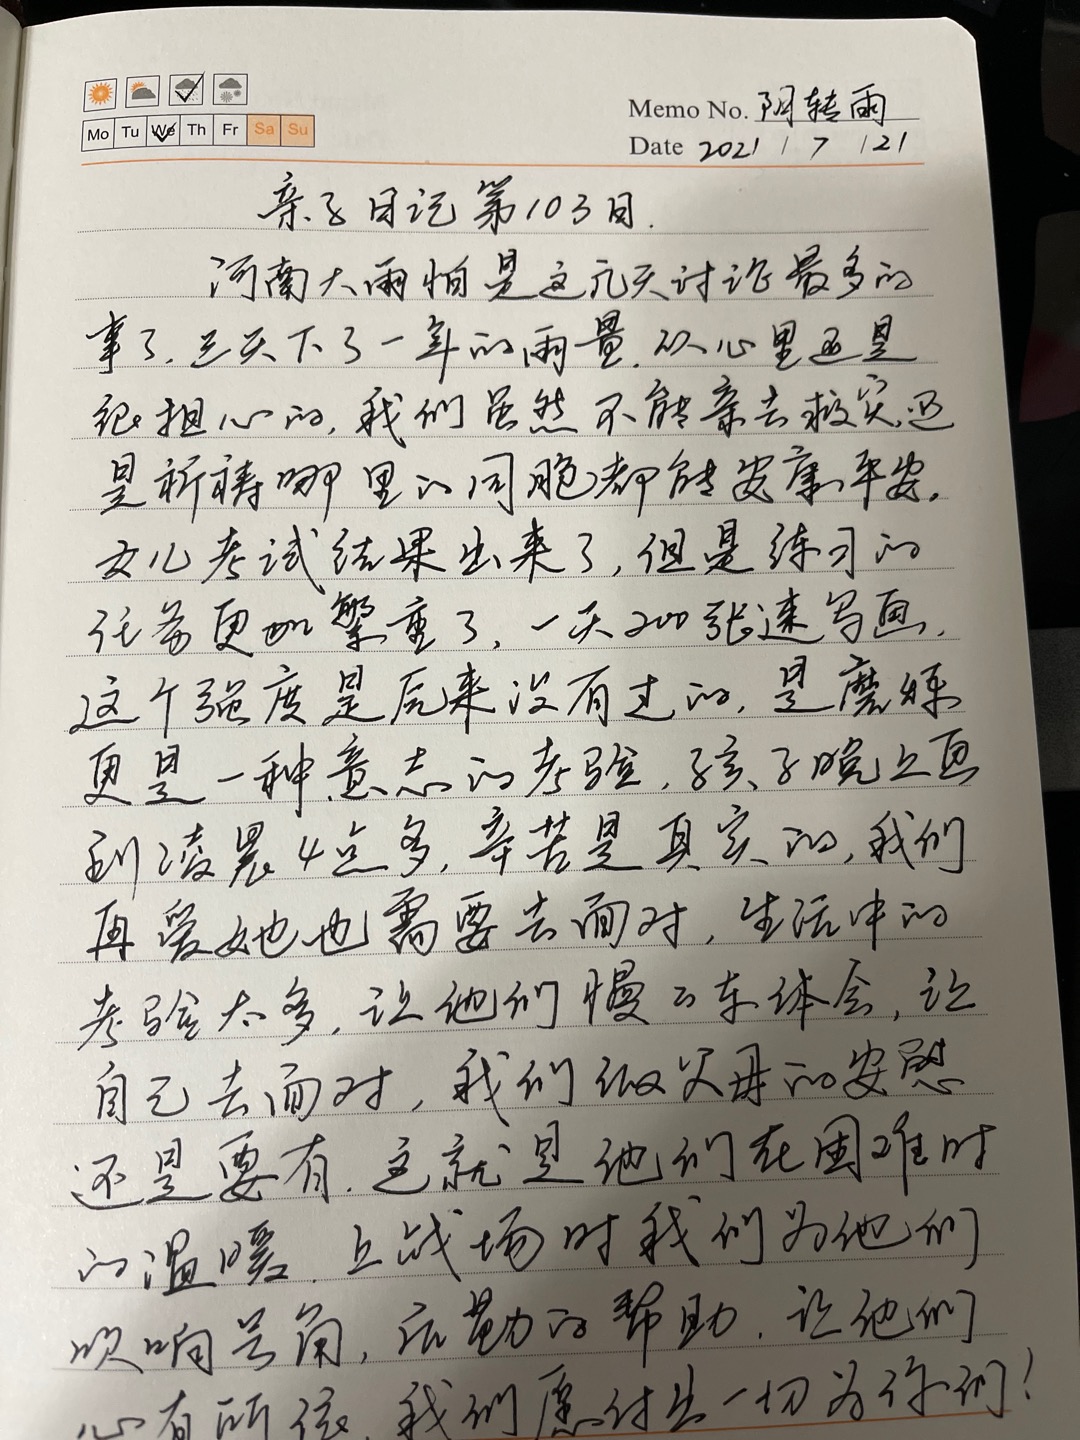 Mo Tu We Th Fr Sa Su
Memo No. 阴转雨
Date 2021 / 7 / 21
亲子日记第103日.
河南大雨怕是这几天讨论最多的
事了.三天下了一年的雨量.从心里还是
很担心的,我们虽然不能亲去救灾,还
是祈祷哪里的同胞都能安康平安.
女儿考试结果出来了,但是练习的
任务更加繁重了,一天200张速写画.
这个强度是后来没有过的,是磨练
更是一种意志的考验,孩子晚上画
到凌晨4点多,辛苦是真实的,我们
再爱她也需要去面对,生活中的
考验太多,让他们慢々来体会,让
自己去面对,我们做父母的安慰
还是要有.这就是他们在困难时
的温暖.上战场时我们为他们
吹响号角,后勤的帮助.让他们
心有所依.我们愿付出一切为你们!